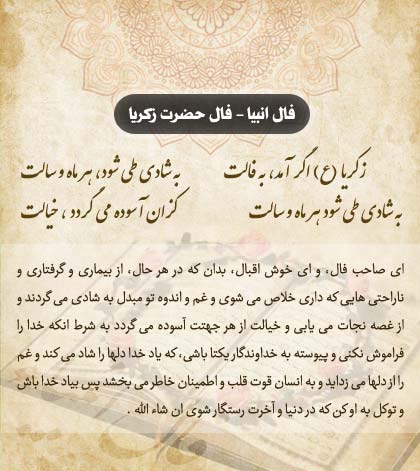 فال انبیا - فال حضرت زکریا
زکریا (ع) اگر آمد، به فالت به شادی طی شود، هر ماه و سالت
به شادی طی شود هر ماه و سالت کز ان آسوده می گردد ، خیالت
ای صاحب فال، و ای خوش اقبال، بدان که در هر حال، از بیماری و گرفتاری و
ناراحتی هایی که داری خلاص می شوی و غم و اندوه تو مبدل به شادی می گردند و
از غصه نجات می یابی و خیالت از هر جهتت آسوده می گردد به شرط انکه خدا را
فراموش نکنی و پیوسته به خداوندگار یکتا باشی، که یاد خدا دلها را شاد می کند و غم
را از دلها می زداید و به انسان قوت قلب و اطمینان خاطر می بخشد پس بیاد خدا باش
و توکل به او کن که در دنیا و آخرت رستگار شوی ان شاء الله .